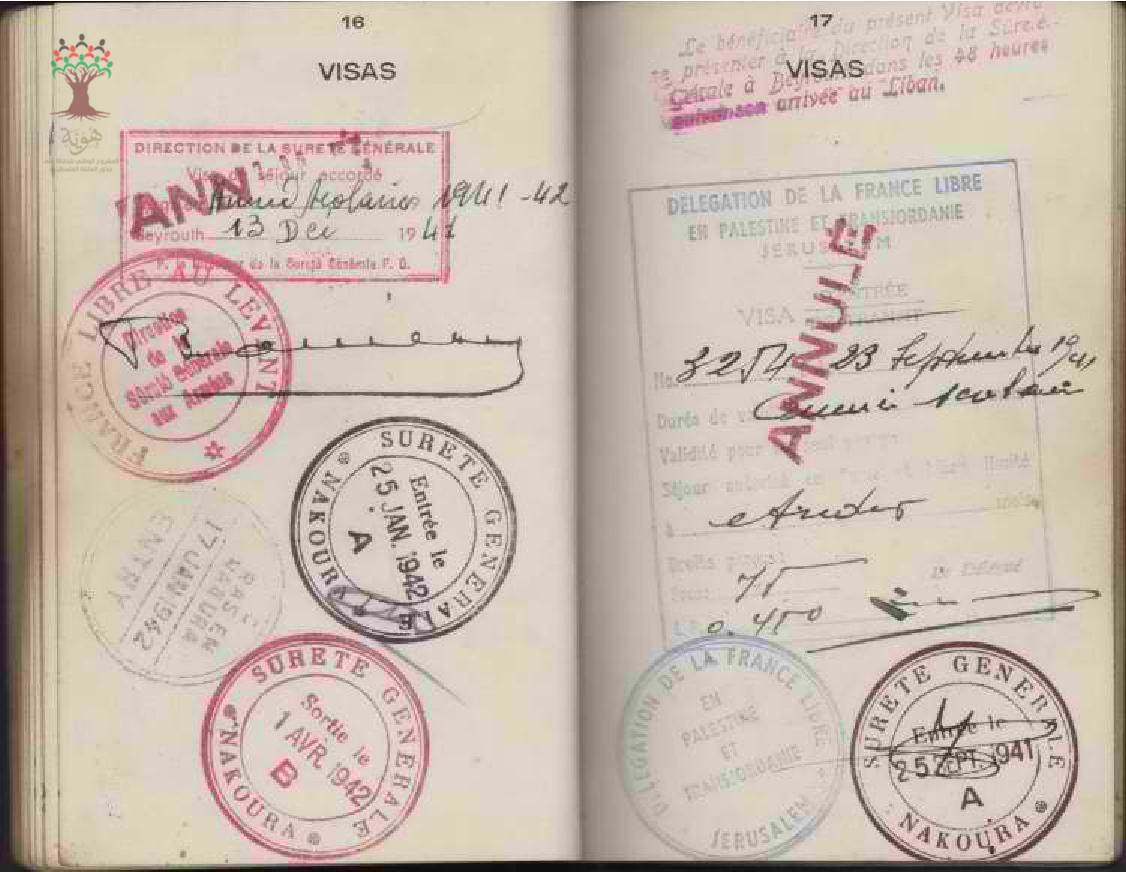 16
VISAS
هوية
DIRECTION DE LA SURETE GÉNÉRALE
Visa de séjour accordé
ANN
Année Scolaire 1941-42
Beyrouth 13 Dec 1941
de la Sureté Générale F. L.
FRANCE LIBRE AU LEVANT
Direction
de la
Sûreté Générale
aux Armées
SURETE GENERALE
Entrée le
25 JAN. 1942
A
NAKOURA
RAS EN
NAQURA
17 JAN 1942
ENTRY
SURETE GENERALE
Sortie le
1 AVR 1942
B
NAKOURA
17
VISAS
Le bénéficiaire du présent Visa devra
se présenter à la Direction de la Sûreté
Générale à Beyrouth dans les 48 heures
suivant son arrivée au Liban.
DÉLÉGATION DE LA FRANCE LIBRE
EN PALESTINE ET TRANSJORDANIE
JERUSALEM
ENTRÉE
VISA TRANSIT
ANNULÉ
No. 3254 23 Septembre 1941
Durée de
année scolaire
Validité pour
Séjour autorisé en
à mois
Droits perçus:
75
Le Délégué
0.450
DELEGATION DE LA FRANCE LIBRE
EN
PALESTINE
ET
TRANSJORDANIE
JERUSALEM
SURETE GENERALE
Entrée le
25 SEPT. 1941
A
NAKOURA